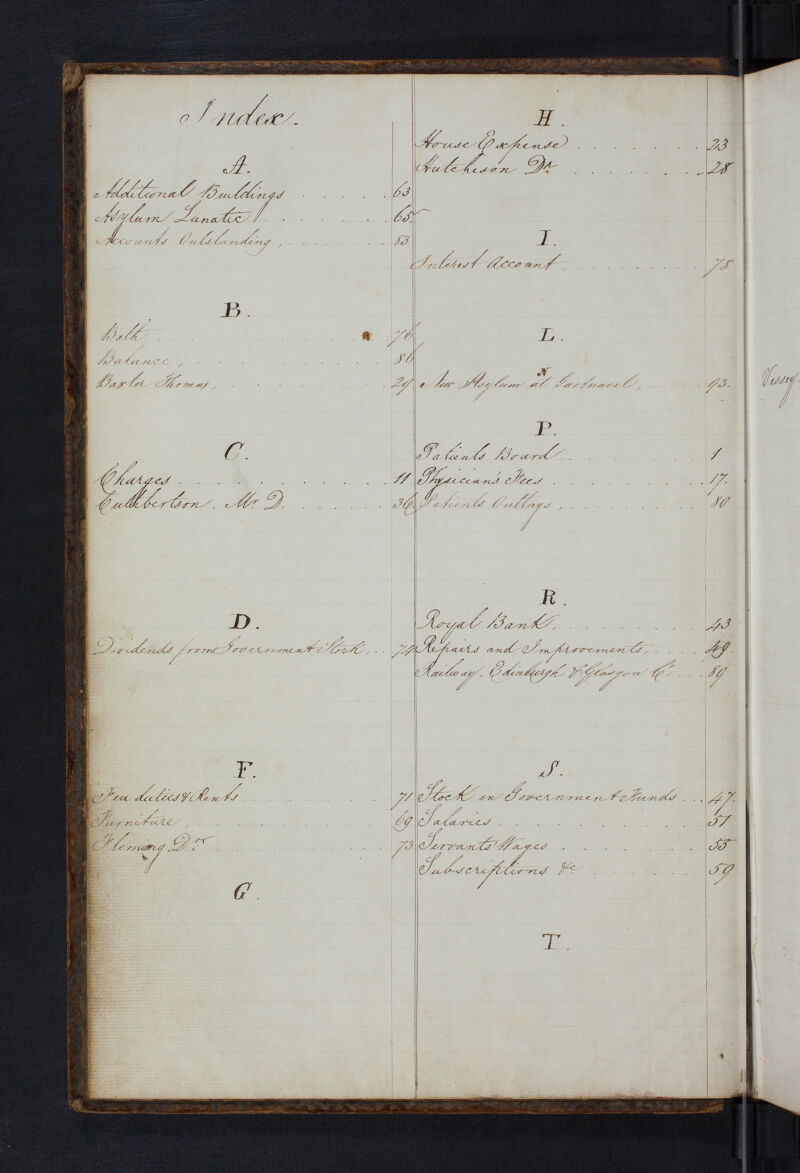 Index.
A.
Additional Buildings 63
Asylum Lunatic 65
Accounts Outstanding, 83
B.
Bath 76
Balance, 86
Baxter Thomas, 29
C.
Charges 11
Cuthbertson, Mr. D. 36
D.
Dividends from Government Stock 74
F.
Feu duties & Rents 71
Furniture, 69
Fleming Dr. 73
G.
H.
House Expense 23
Hutcheson Dr. 28
I.
Interest Account, 78
L.
N
New Asylum at Gartnavel, 93.
P.
Patients Board 1
Physician's Fees 17.
Patients Outlays, 80
R.
Royal Bank, 43
Repairs and Improvements, 49.
Railway, Edinburgh & Glasgow Co. 89
S.
Stock in Government Funds 47.
Salaries 51
Servants Wages 55
Subscriptions &c 59
T.